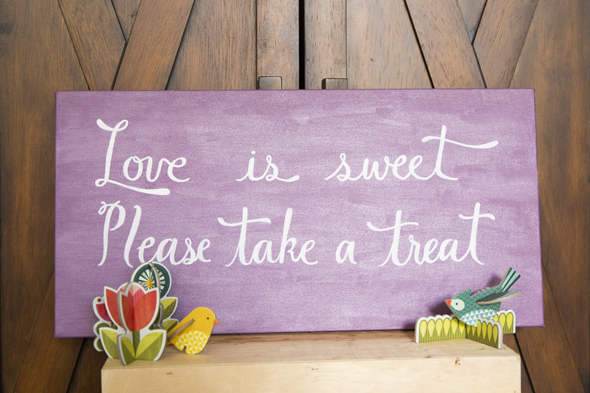 Love is sweet
Please take a treat